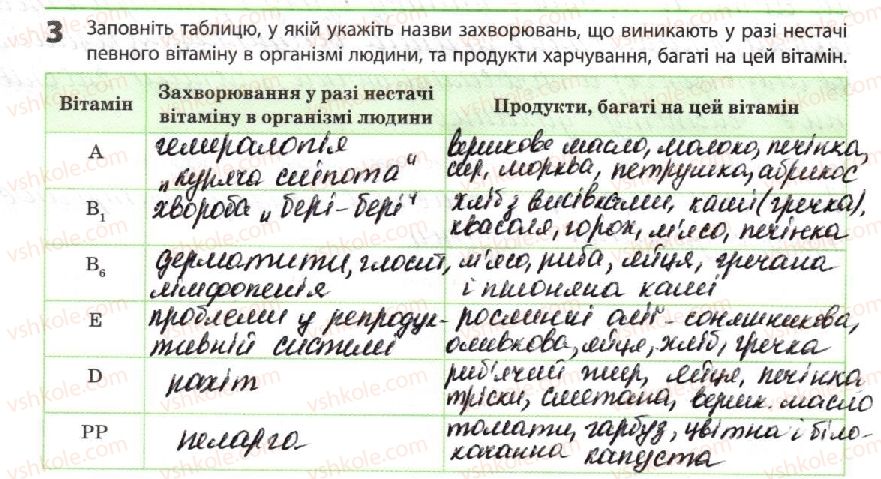 3 Заповніть таблицю, у якій укажіть назви захворювань, що виникають у разі нестачі
певного вітаміну в організмі людини, та продукти харчування, багаті на цей вітамін.
Вітамін
Захворювання у разі нестачі
вітаміну в організмі людини
Продукти, багаті на цей вітамін
A
гемералопія
„куряча сліпота“
вершкове масло, молоко, печінка,
сир, морква, петрушка, абрикос
B1
хвороба „бері-бері“
хліб з висівками, каші (гречка),
квасоля, горох, м'ясо, печінка
B6
дерматити, глосит,
лімфопенія
м'ясо, риба, яйця, гречана
і пшоняна каші
E
проблеми у репродук-
тивній системі
рослинні олії - соняшникова,
оливкова, яйця, хліб, гречка
D
рахіт
риб'ячий жир, яйця, печінка
тріски, сметана, вершк. масло
PP
пеларга
томати, гарбуз, цвітна і біло-
качанна капуста
vshkole.com